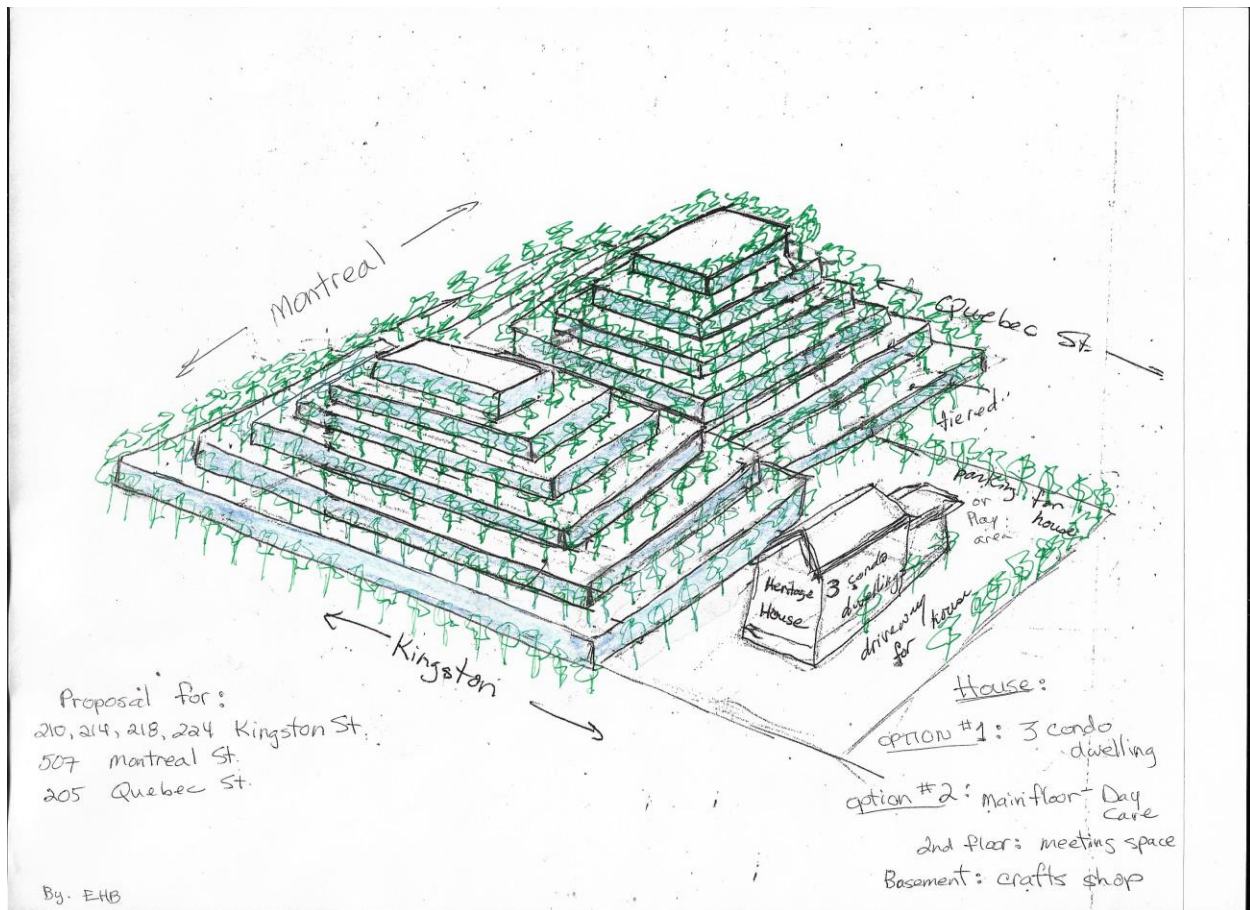 Montreal
Quebec St.
tiered
parking for house
or
Play
area
Heritage
House
3 condo
dwelling
driveway
for house
Kingston
Proposal for:
210, 214, 218, 224 Kingston St.
507 Montreal St.
205 Quebec St.
House:
OPTION #1: 3 condo
dwelling
option #2: main floor - Day
Care
2nd floor: meeting space
Basement: crafts shop
By. EHB